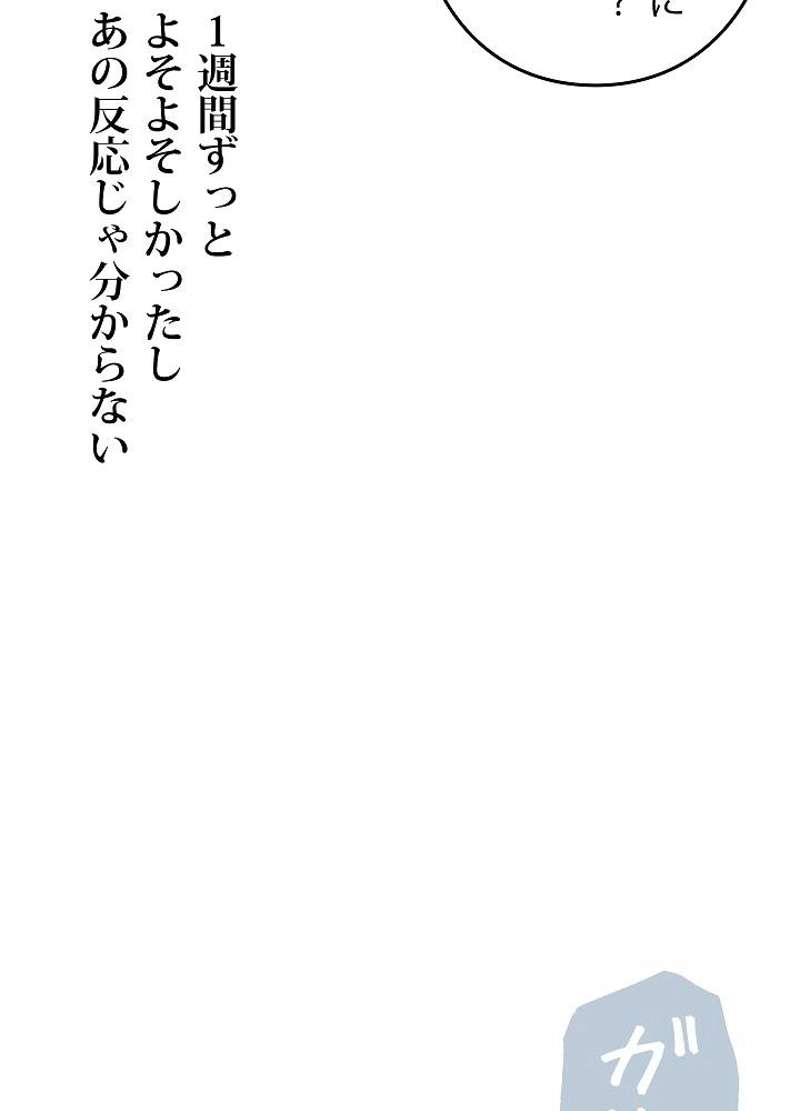 に
?
1週間ずっと
よそよそしかったし
あの反応じゃ分からない
ガ